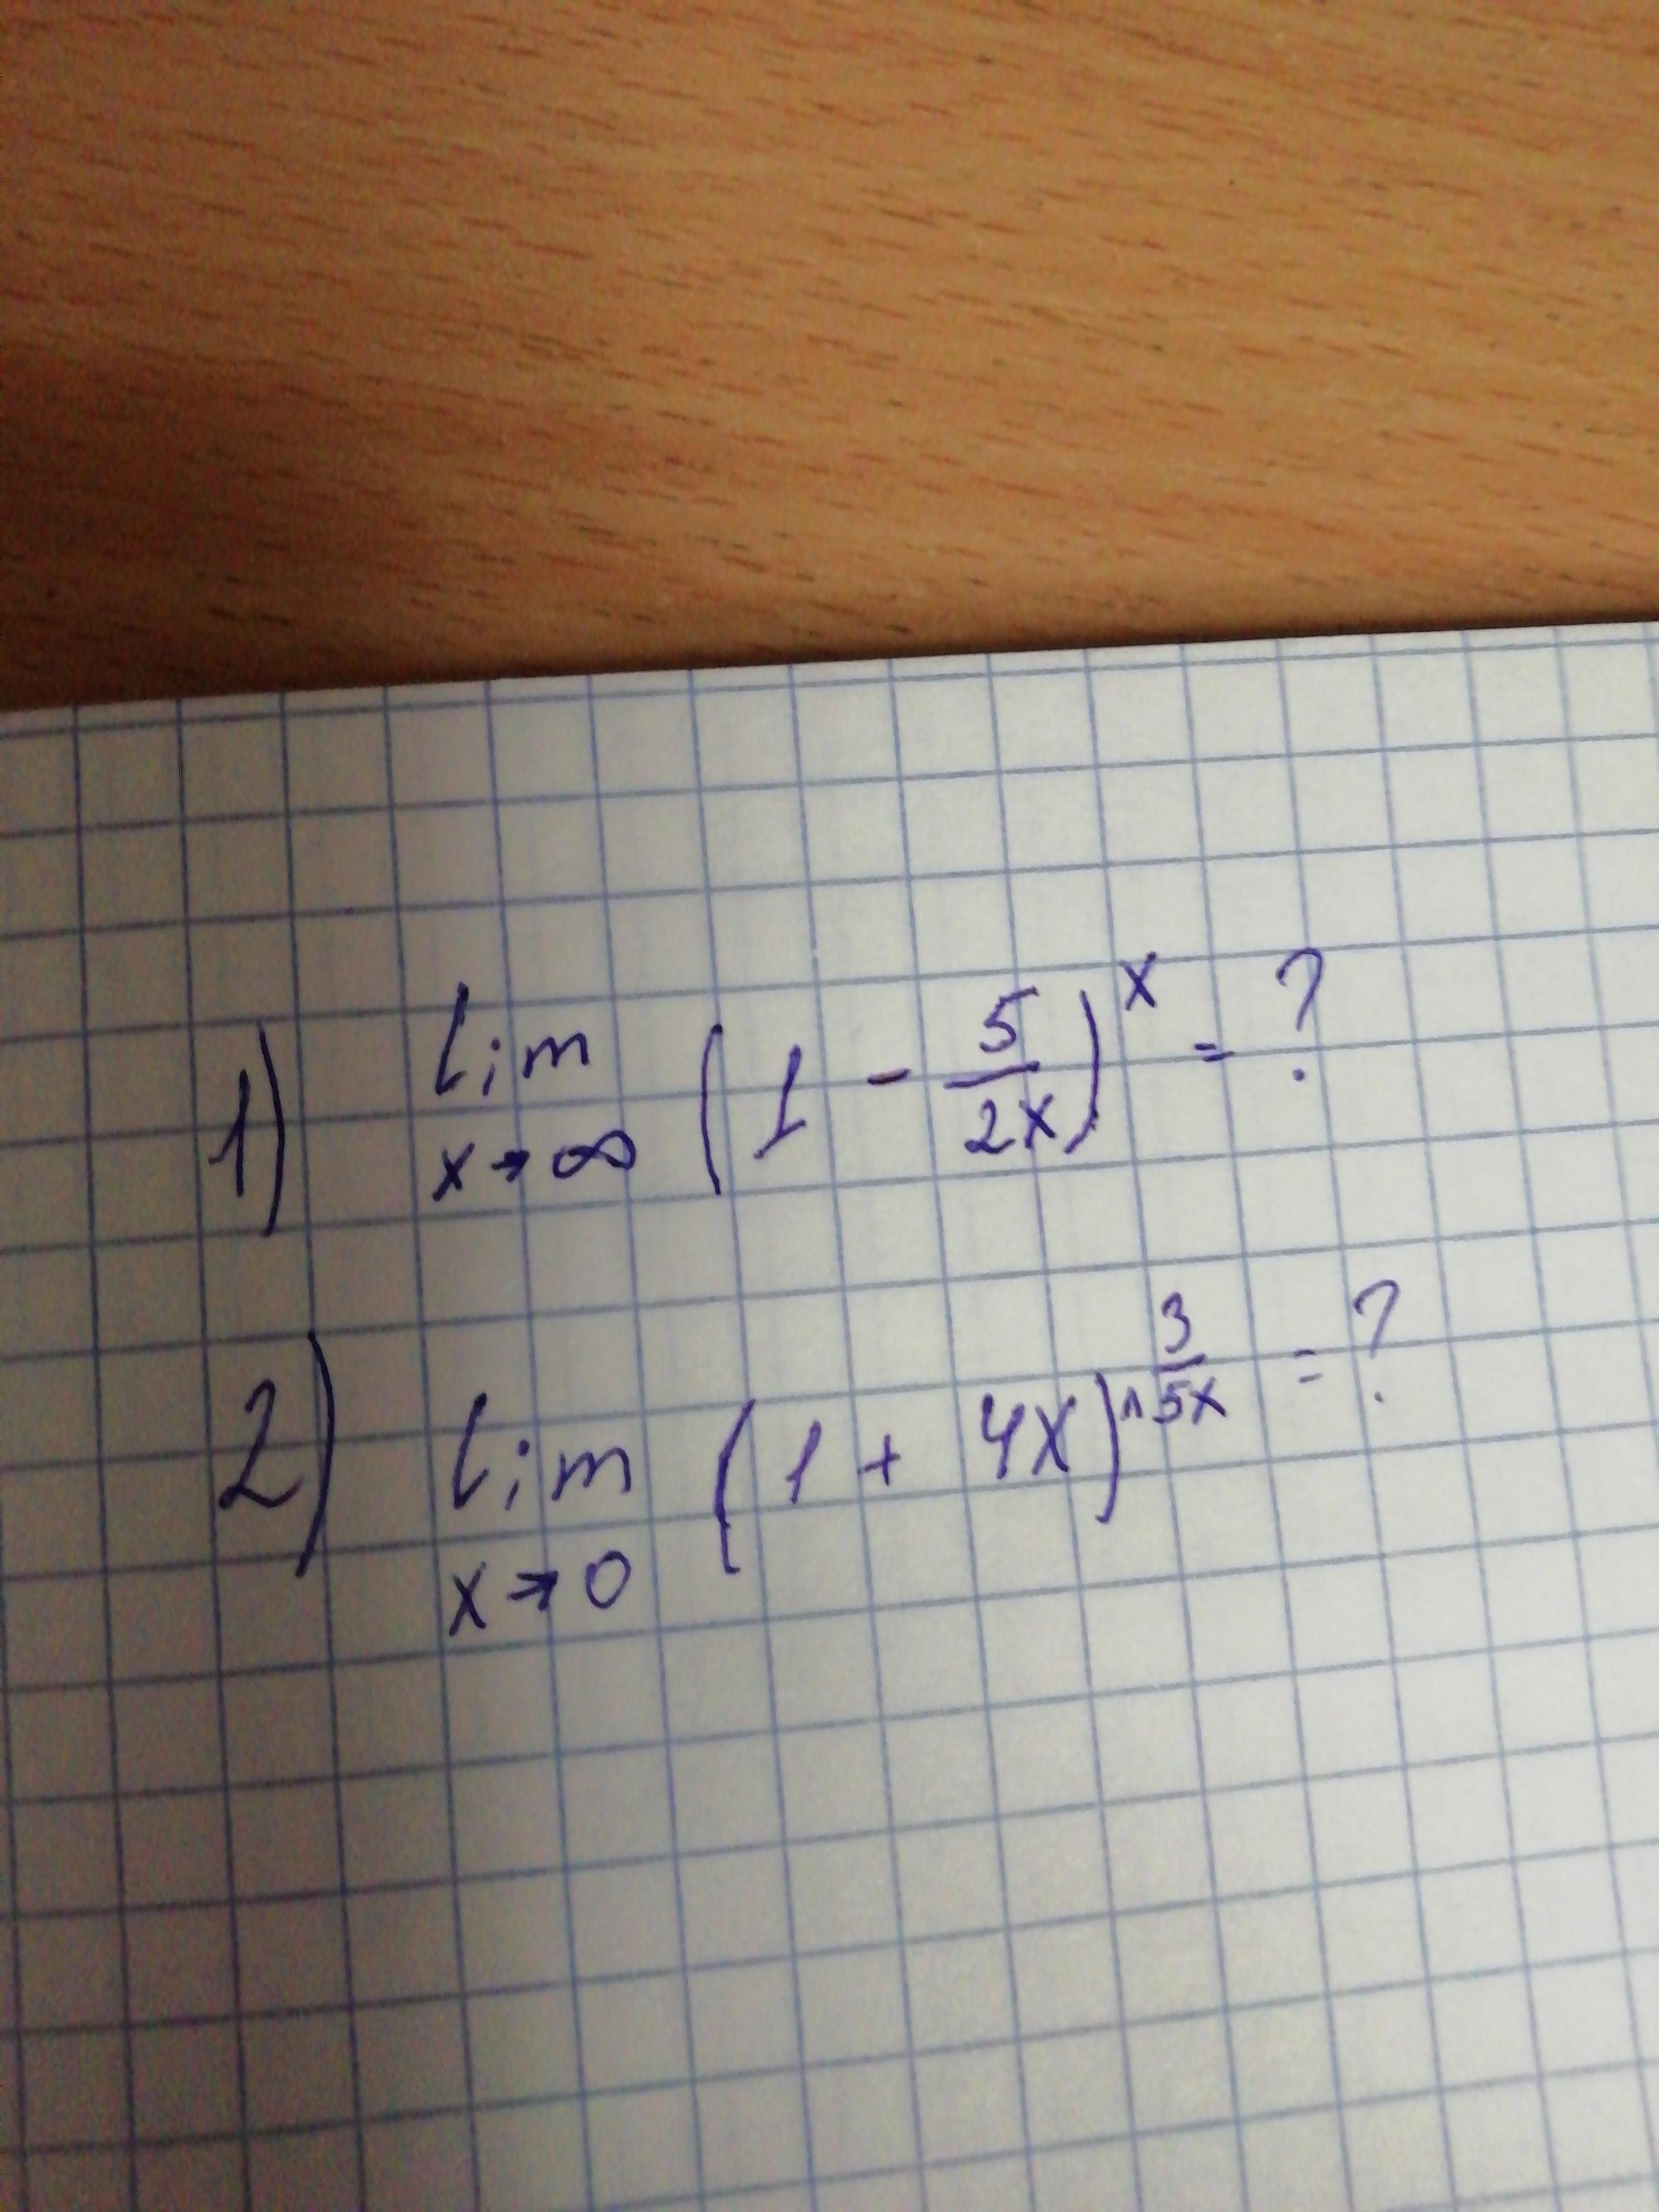 1) lim x→∞ (1 - 5/2x)^x = ?
2) lim x→0 (1 + 4x)^3/5x = ?